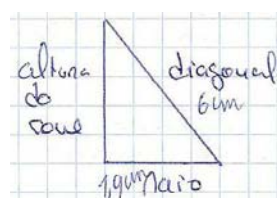 altura
do
cone
diagonal
6cm
1,9cm raio